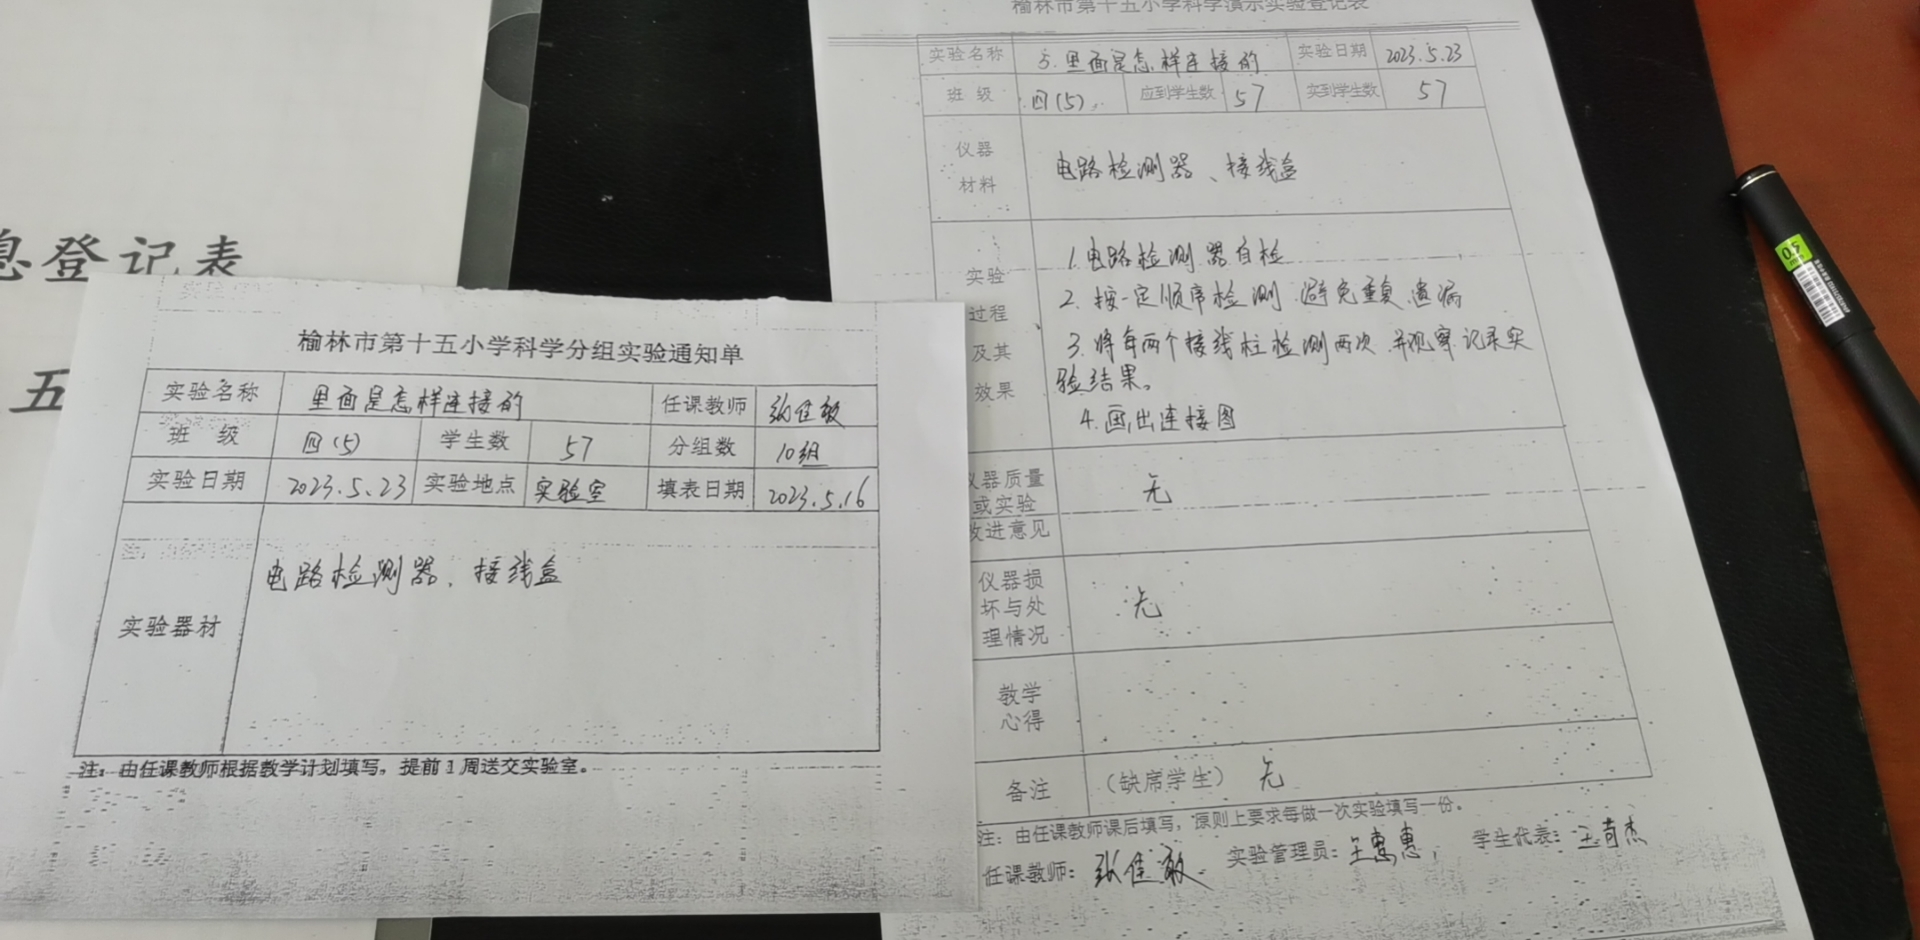 息登记表
五
榆林市第十五小学科学分组实验通知单
实验名称 里面是怎样连接的 任课教师 张佳敏
班 级 四(5) 学生数 57 分组数 10组
实验日期 2023.5.23 实验地点 实验室 填表日期 2023.5.16
实验器材 电路检测器、接线盒
注：由任课教师根据教学计划填写，提前1周送交实验室。
榆林市第十五小学科学演示实验登记表
实验名称 5.里面是怎样连接的 实验日期 2023.5.23
班 级 四(5) 应到学生数 57 实到学生数 57
仪器
材料
电路检测器、接线盒
实验
过程
及其
效果
1.电路检测器自检
2.按一定顺序检测 避免重复遗漏
3.将每两个接线柱检测两次 并观察记录实
验结果。
4.画出连接图
仪器质量
或实验
改进意见
无
仪器损
坏与处
理情况
无
教学
心得
备注 (缺席学生) 无
注：由任课教师课后填写，原则上要求每做一次实验填写一份。
任课教师：张佳敏 实验管理员：王惠惠 学生代表：王
0.5